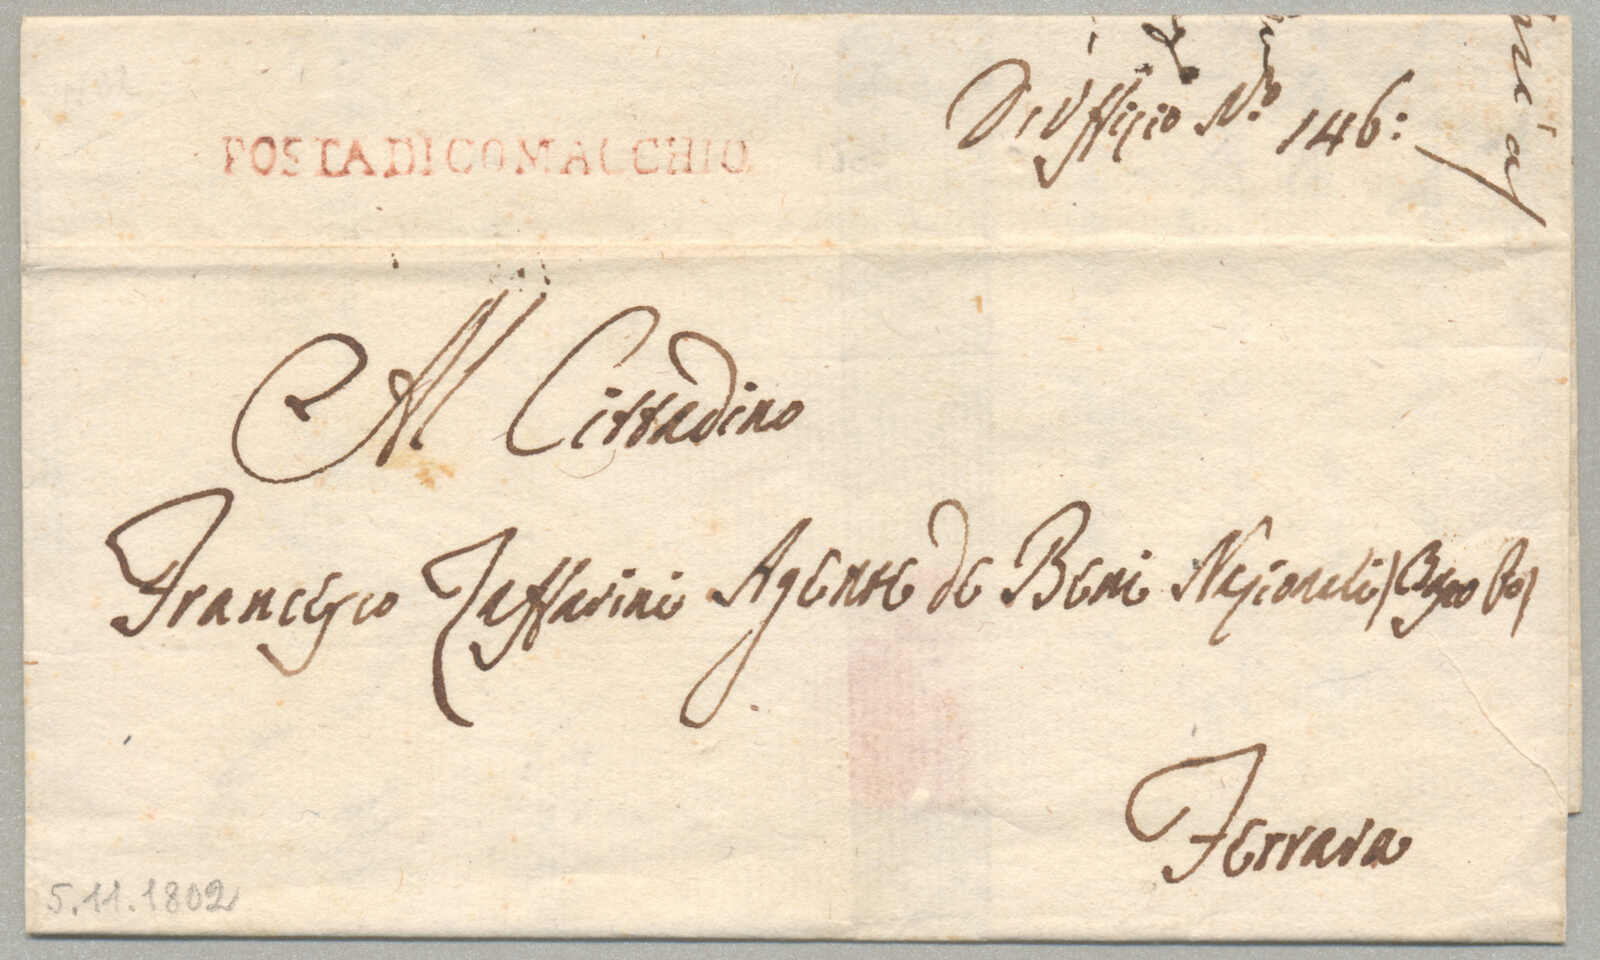 POSTA DI COMACCHIO
D'Uffizio N.º 146:
Al Cittadino
Francesco Zaffarini Agente de Beni Nazionali
Ferrara
5.11.1802